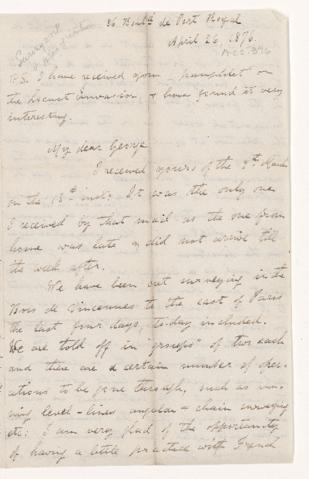 86 Boul.d de Port Royal
April 26, 1876.
P.S. I have received your pamphlet on
the Locust Invasion, & have found it very
interesting.
My dear George
I received yours of the 9th March
on the 13th inst: It was the only one
I received by that mail as the one from
home was late & did not arrive till
the week after.
We have been out surveying in the
Bois de Vincennes to the east of Paris
the last four days, to-day included.
We are told off in "groups" of two each
and there are a certain number of oper-
ations to be gone through, such as run-
ning level-lines angular & chain surveying
etc: I am very glad of the opportunity
of having a little practice with French